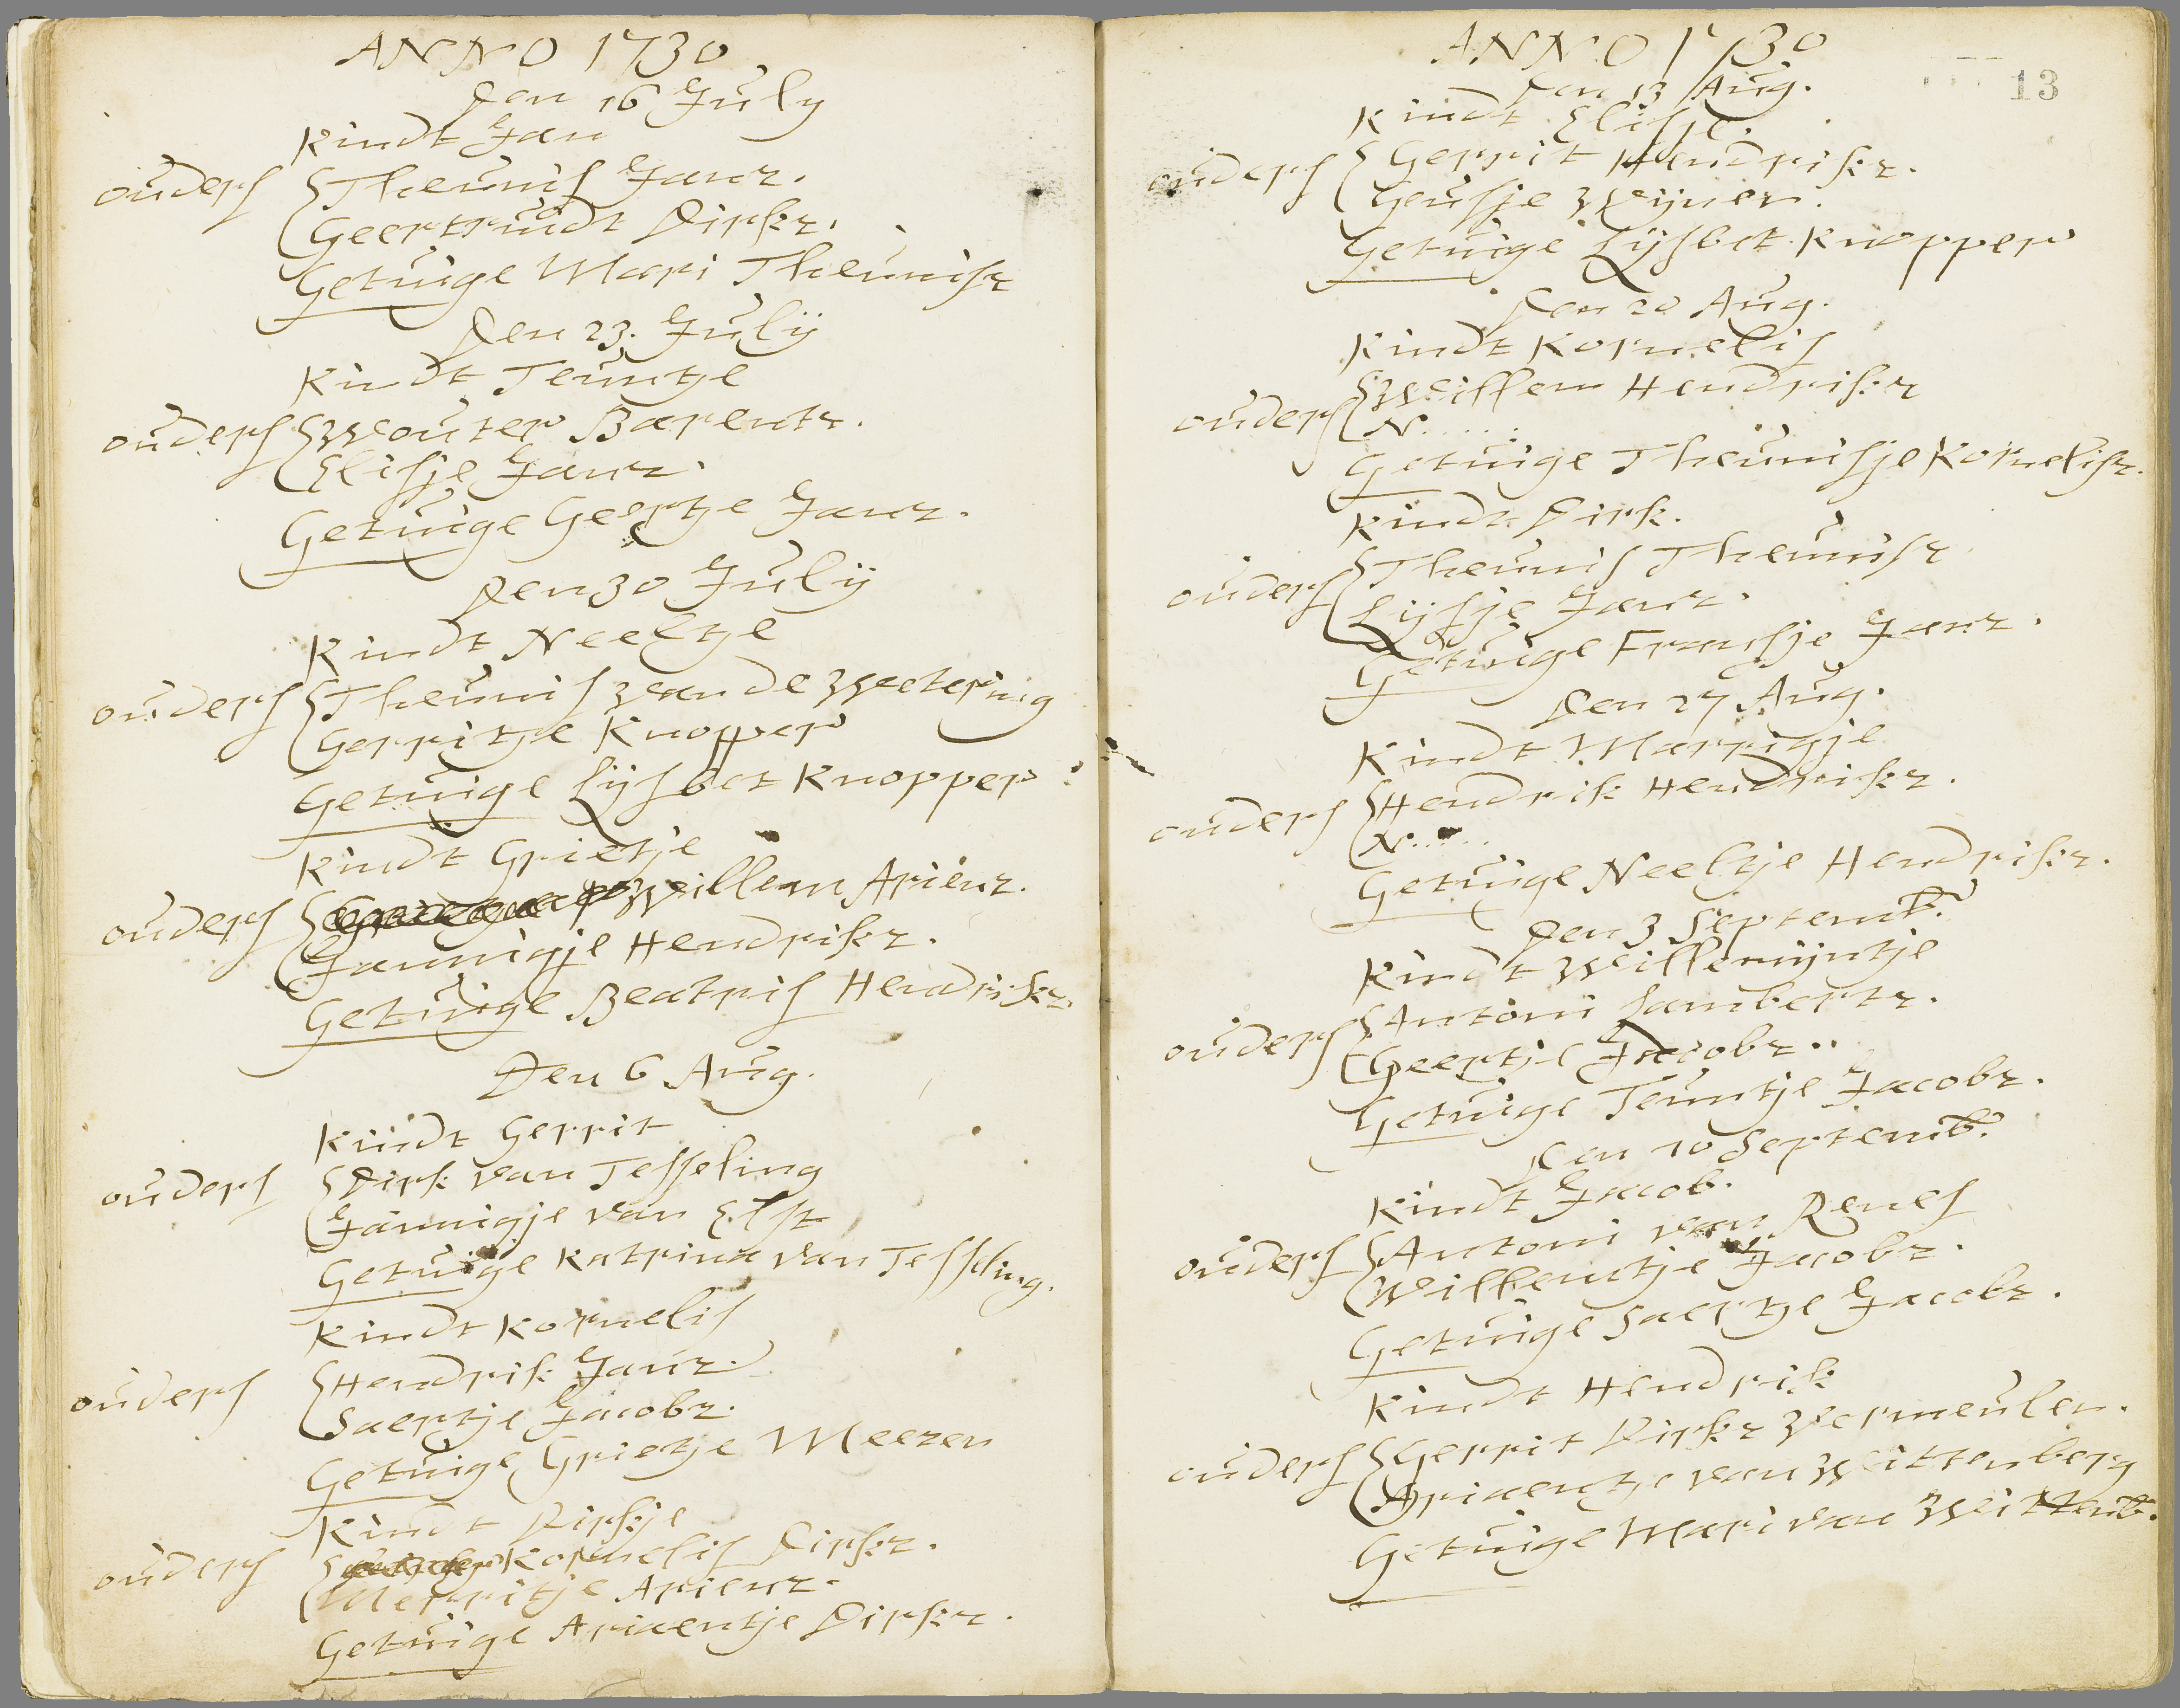 ANNO 1730
Den 16 July
Kindt Jan
ouders Theunis Janz.
Geertruidt Dirkz.
Getuige Mari Theunisz
Den 23. Julÿ
Kindt Teuntje
ouders Wouter Barentz.
Elisje Janz.
Getuige Geertje Janz.
Den 30 Julÿ
Kindt Neeltje
ouders Theunis van de Wetering
Gerritje Knopper
Getuige Lijsbet Knopper
Kindt Grietje
ouders Willem Ariënz.
Jannigje Hendrikz.
Getuige Beatris Hendrikz.
Den 6 Aug.
Kindt Gerrit
ouders Dirk van Tesseling
Jannigje van Elst
Getuige Katrina van Tesseling.
Kindt Kornelis
ouders Hendrik Janz.
Saertje Jacobz.
Getuige Grietje Meezen
Kindt Dirkje
ouders Kornelis Dirkz.
Merritje Arienz.
Getuige Ariaentje Dirkz.
ANNO 1730
13
Den 13 Aug.
Kindt Elisje.
ouders Gerrit Hendrikz.
Geusje Weijner.
Getuige Lijsbet Knopper
Den 20 Aug.
Kindt Kornelis
ouders Willem Hendrikz
N......
Getuige Theunisje Kornelisz.
Kindt Dirk.
ouders Theunis Theunisz
Lijsje Janz.
Getuige Fransje Janz.
Den 27 Aug.
Kindt Marrigje
ouders Hendrik Hendrikz.
N......
Getuige Neeltje Hendrikz.
Den 3 Septemb.
Kindt Willemijntje
ouders Antoni Lambertz.
Geertje Jacobz..
Getuige Teuntje Jacobz.
Den 10 Septemb.
Kindt Jacob.
ouders Antoni van Renes
Willemtje Jacobz.
Getuige Saertje Jacobz.
Kindt Hendrik
ouders Gerrit Dirkz Vermeulen.
Ariaentje van Wittenberg
Getuige Mari van Wittenb.